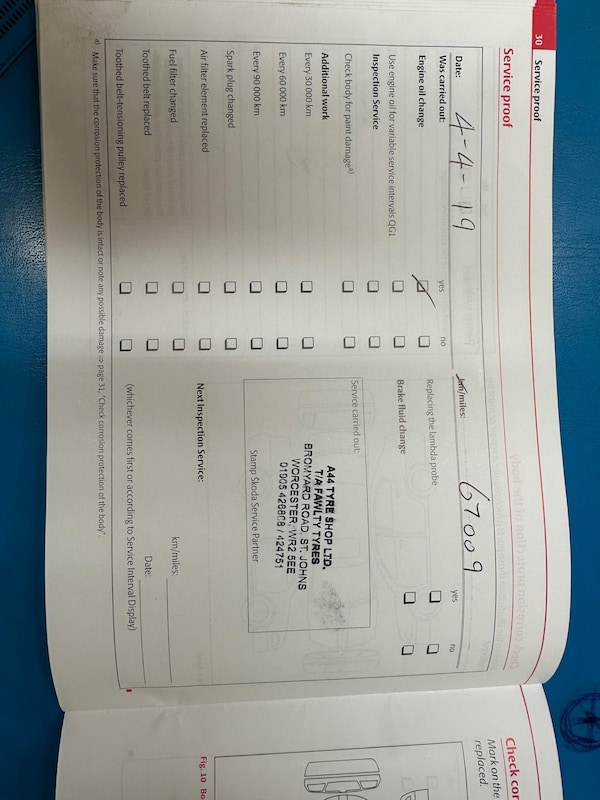 30 Service proof
Service proof
Date: 4-4-19
km/miles: 67009
Was carried out: yes no
yes no
Engine oil change
Replacing the lambda probe
Use engine oil for variable service intervals QG1
Brake fluid change
Inspection Service
Check body for paint damage a)
Service carried out:
Additional work
Every 30 000 km
Every 60 000 km
Every 90 000 km
Spark plug changed
Air filter element replaced
Fuel filter changed
Toothed belt replaced
Toothed belt-tensioning pulley replaced
A44 TYRE SHOP LTD.
T/A FAWLTY TYRES
BROMYARD ROAD, ST. JOHNS
WORCESTER, WR2 5EE
01905 426808 / 424751
Stamp Škoda Service Partner
Next Inspection Service:
km/miles:
Date:
(whichever comes first or according to Service Interval Display)
a) Make sure that the corrosion protection of the body is intact or note any possible damage ⇒ page 31, "Check corrosion protection of the body".
Check cor
Mark on the
replaced.
Fig. 10 Bo